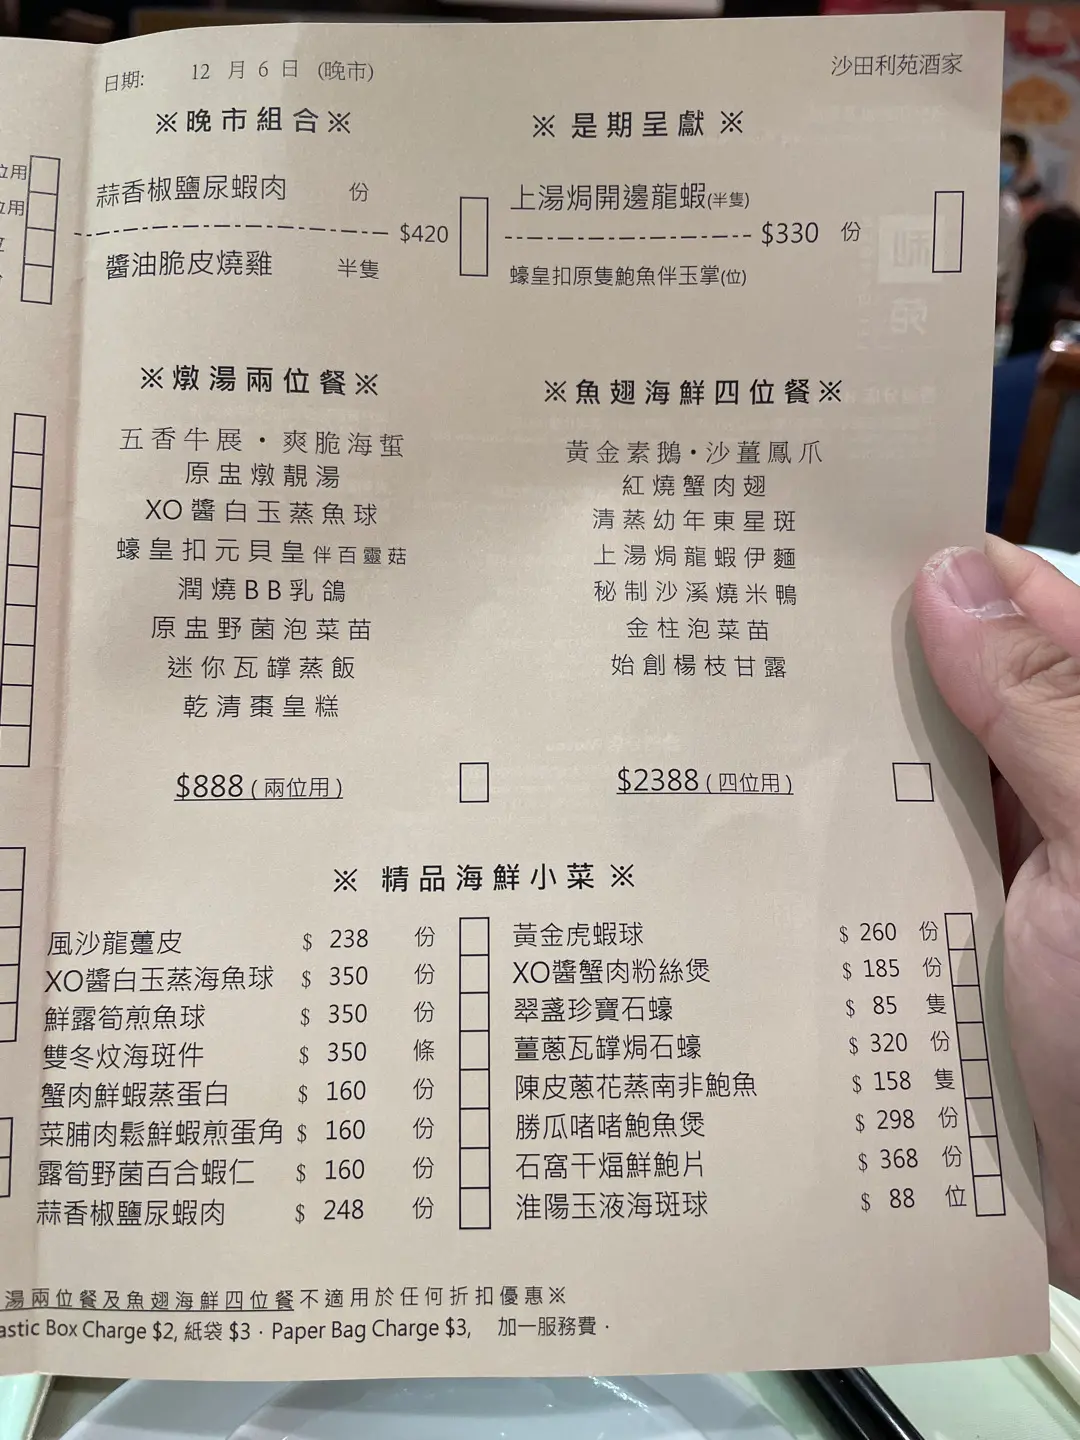 日期: 12 月 6 日 (晚市)
沙田利苑酒家
※晚市組合※
蒜香椒鹽尿蝦肉 份
$420
醬油脆皮燒雞 半隻
※ 是期呈獻 ※
上湯焗開邊龍蝦(半隻)
$330 份
蠔皇扣原隻鮑魚伴玉掌(位)
※燉湯兩位餐※
五香牛展・爽脆海蜇
原盅燉靚湯
XO醬白玉蒸魚球
蠔皇扣元貝皇伴百靈菇
潤燒BB乳鴿
原盅野菌泡菜苗
迷你瓦罉蒸飯
乾清棗皇糕
$888 (兩位用)
※魚翅海鮮四位餐※
黃金素鵝・沙薑鳳爪
紅燒蟹肉翅
清蒸幼年東星斑
上湯焗龍蝦伊麵
秘制沙溪燒米鴨
金柱泡菜苗
始創楊枝甘露
$2388 (四位用)
※ 精品海鮮小菜 ※
風沙龍躉皮 $ 238 份
XO醬白玉蒸海魚球 $ 350 份
鮮露筍煎魚球 $ 350 份
雙冬炆海斑件 $ 350 條
蟹肉鮮蝦蒸蛋白 $ 160 份
菜脯肉鬆鮮蝦煎蛋角 $ 160 份
露筍野菌百合蝦仁 $ 160 份
蒜香椒鹽尿蝦肉 $ 248 份
黃金虎蝦球 $ 260 份
XO醬蟹肉粉絲煲 $ 185 份
翠盞珍寶石蠔 $ 85 隻
薑蔥瓦罉焗石蠔 $ 320 份
陳皮蔥花蒸南非鮑魚 $ 158 隻
勝瓜啫啫鮑魚煲 $ 298 份
石窩干煏鮮鮑片 $ 368 份
淮陽玉液海斑球 $ 88 位
湯兩位餐及魚翅海鮮四位餐不適用於任何折扣優惠※
Box Charge $2, 紙袋 $3 · Paper Bag Charge $3, 加一服務費 ·